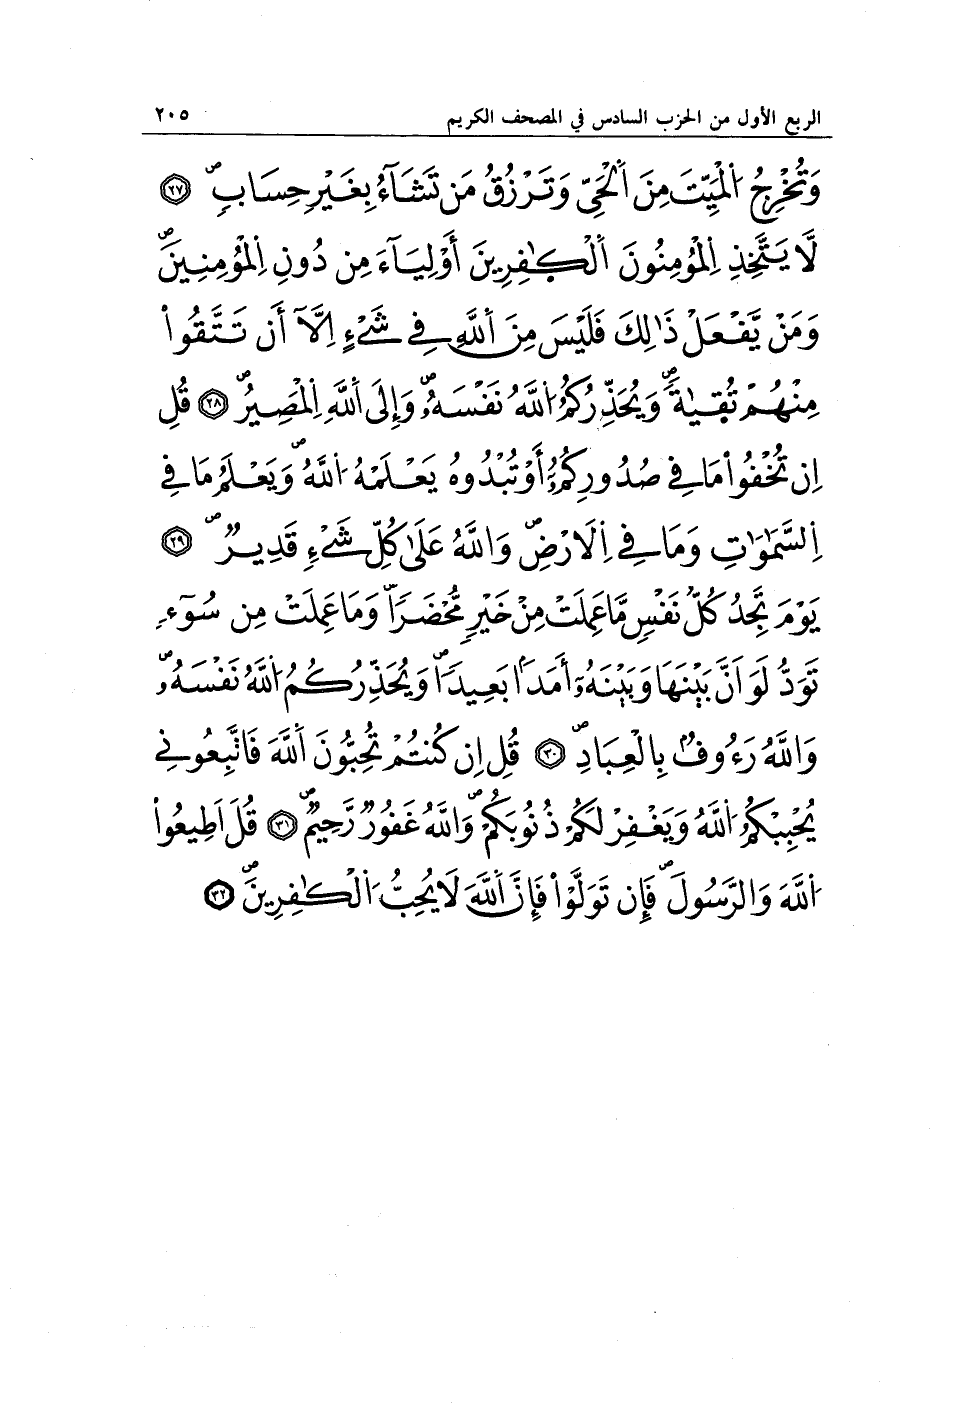 الربع الأول من الحزب السادس في المصحف الكريم ٢٠٥
وَتُخْرِجُ اُ۬لْمَيِّتَ مِنَ اَ۬لْحَيِّ وَتَرْزُقُ مَن تَشَآءُ بِغَيْرِ حِسَابٍۖ ٢٧
لَّا يَتَّخِذِ اِ۬لْمُؤْمِنُونَ اَ۬لْكٰ۪فِرِينَ أَوْلِيَآءَ مِن دُونِ اِ۬لْمُؤْمِنِينَۖ
وَمَنْ يَّفْعَلْ ذَٰلِكَ فَلَيْسَ مِنَ اَ۬للَّهِ فِي شَيْءٍ اِلَّآ أَن تَتَّقُواْ
مِنْهُمْ تُقٰ۪ىةٗۖ وَيُحَذِّرُكُمُ اُ۬للَّهُ نَفْسَهُۥۖ وَإِلَى اَ۬للَّهِ اِ۬لْمَصِيرُۖ ٢٨ قُلِ
اِن تُخْفُواْ مَا فِي صُدُورِكُمُۥٓ أَوْ تُبْدُوهُ يَعْلَمْهُ اُ۬للَّهُۖ وَيَعْلَمُ مَا فِي
اِ۬لسَّمَٰوَٰتِ وَمَا فِي اِ۬لَارْضِۖ وَاللَّهُ عَلَىٰ كُلِّ شَيْءٖ قَدِيرٞۖ ٢٩
يَوْمَ تَجِدُ كُلُّ نَفْسٖ مَّا عَمِلَتْ مِنْ خَيْرٖ مُّحْضَراٗۖ وَمَا عَمِلَتْ مِن سُوٓءٖ
تَوَدُّ لَوَ اَنَّ بَيْنَهَا وَبَيْنَهُۥٓ أَمَداَۢ بَعِيداٗۖ وَيُحَذِّرُكُمُ اُ۬للَّهُ نَفْسَهُۥۖ
وَاللَّهُ رَءُوفُۢ بِالْعِبَادِۖ ٣٠ قُلِ اِن كُنتُمْ تُحِبُّونَ اَ۬للَّهَ فَاتَّبِعُونِي
يُحْبِبْكُمُ اُ۬للَّهُ وَيَغْفِرْ لَكُمْ ذُنُوبَكُمْۖ وَاللَّهُ غَفُورٞ رَّحِيمٞۖ ٣١ قُلَ اَطِيعُواْ
اُ۬للَّهَ وَالرَّسُولَۖ فَإِن تَوَلَّوْاْ فَإِنَّ اَ۬للَّهَ لَا يُحِبُّ اُ۬لْكٰ۪فِرِينَۖ ٣٢